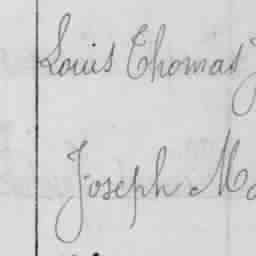 Louis Thomas
Joseph